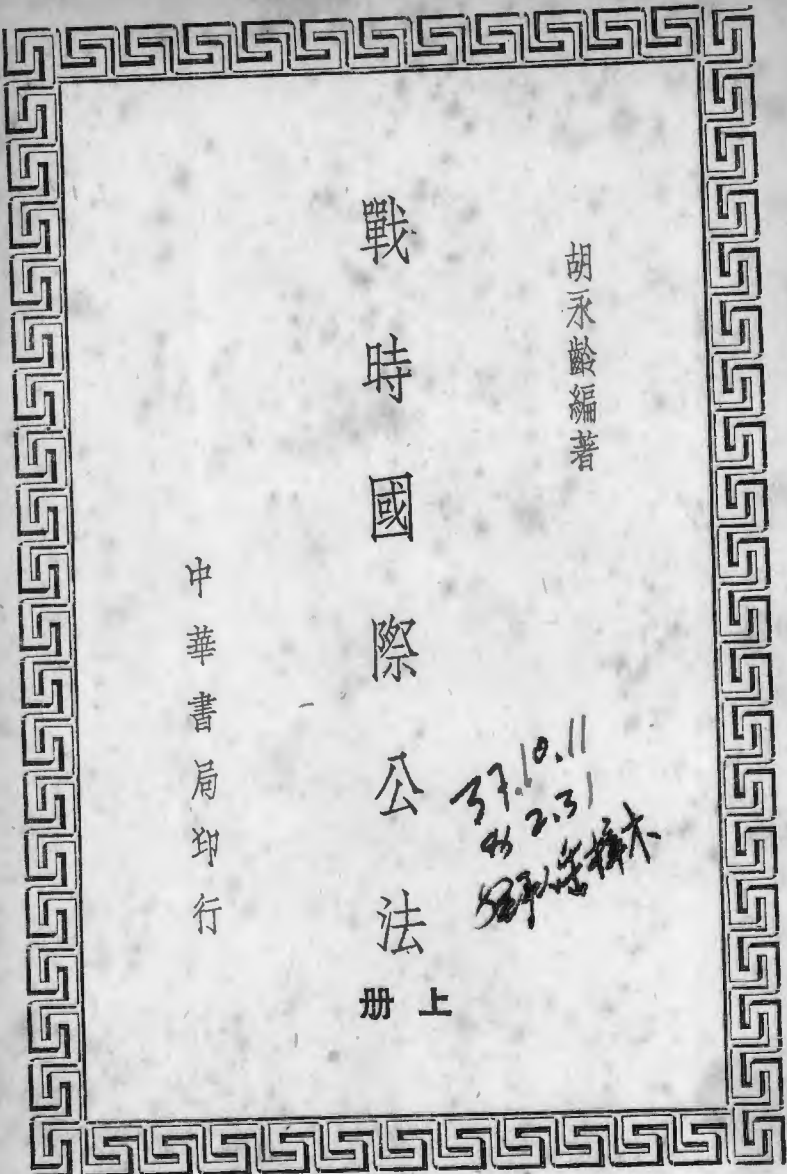 胡永齡編著
戰時國際公法
册上
中華書局印行
37.10.11
2.31